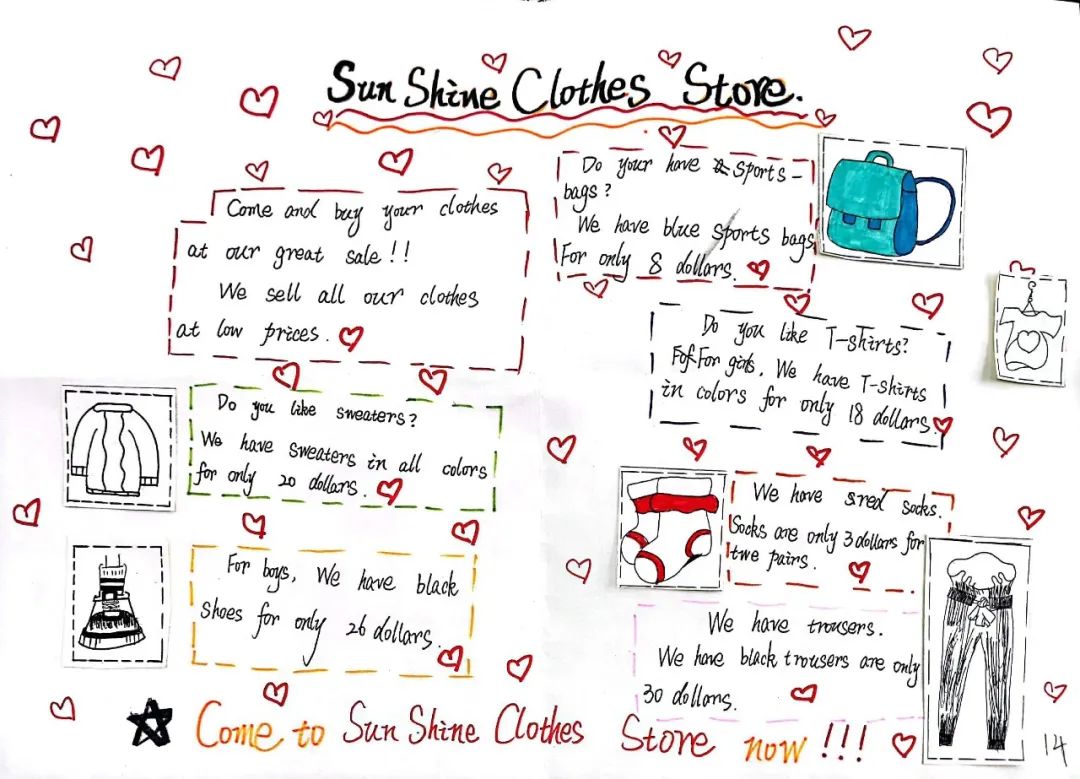 Sun Shine Clothes Store.
Come and buy your clothes
at our great sale!!
We sell all our clothes
at low prices.
Do you like sweaters?
We have sweaters in all colors
for only 20 dollars.
For boys, We have black
shoes for only 26 dollars.
Do your have sports-
bags?
We have blue sports bags
For only 8 dollars.
Do you like T-shirts?
For girls, We have T-shirts
in colors for only 18 dollars.
We have red socks.
Socks are only 3 dollars for
two pairs.
We have trousers.
We have black trousers are only
30 dollars.
Come to Sun Shine Clothes Store now!!!
14